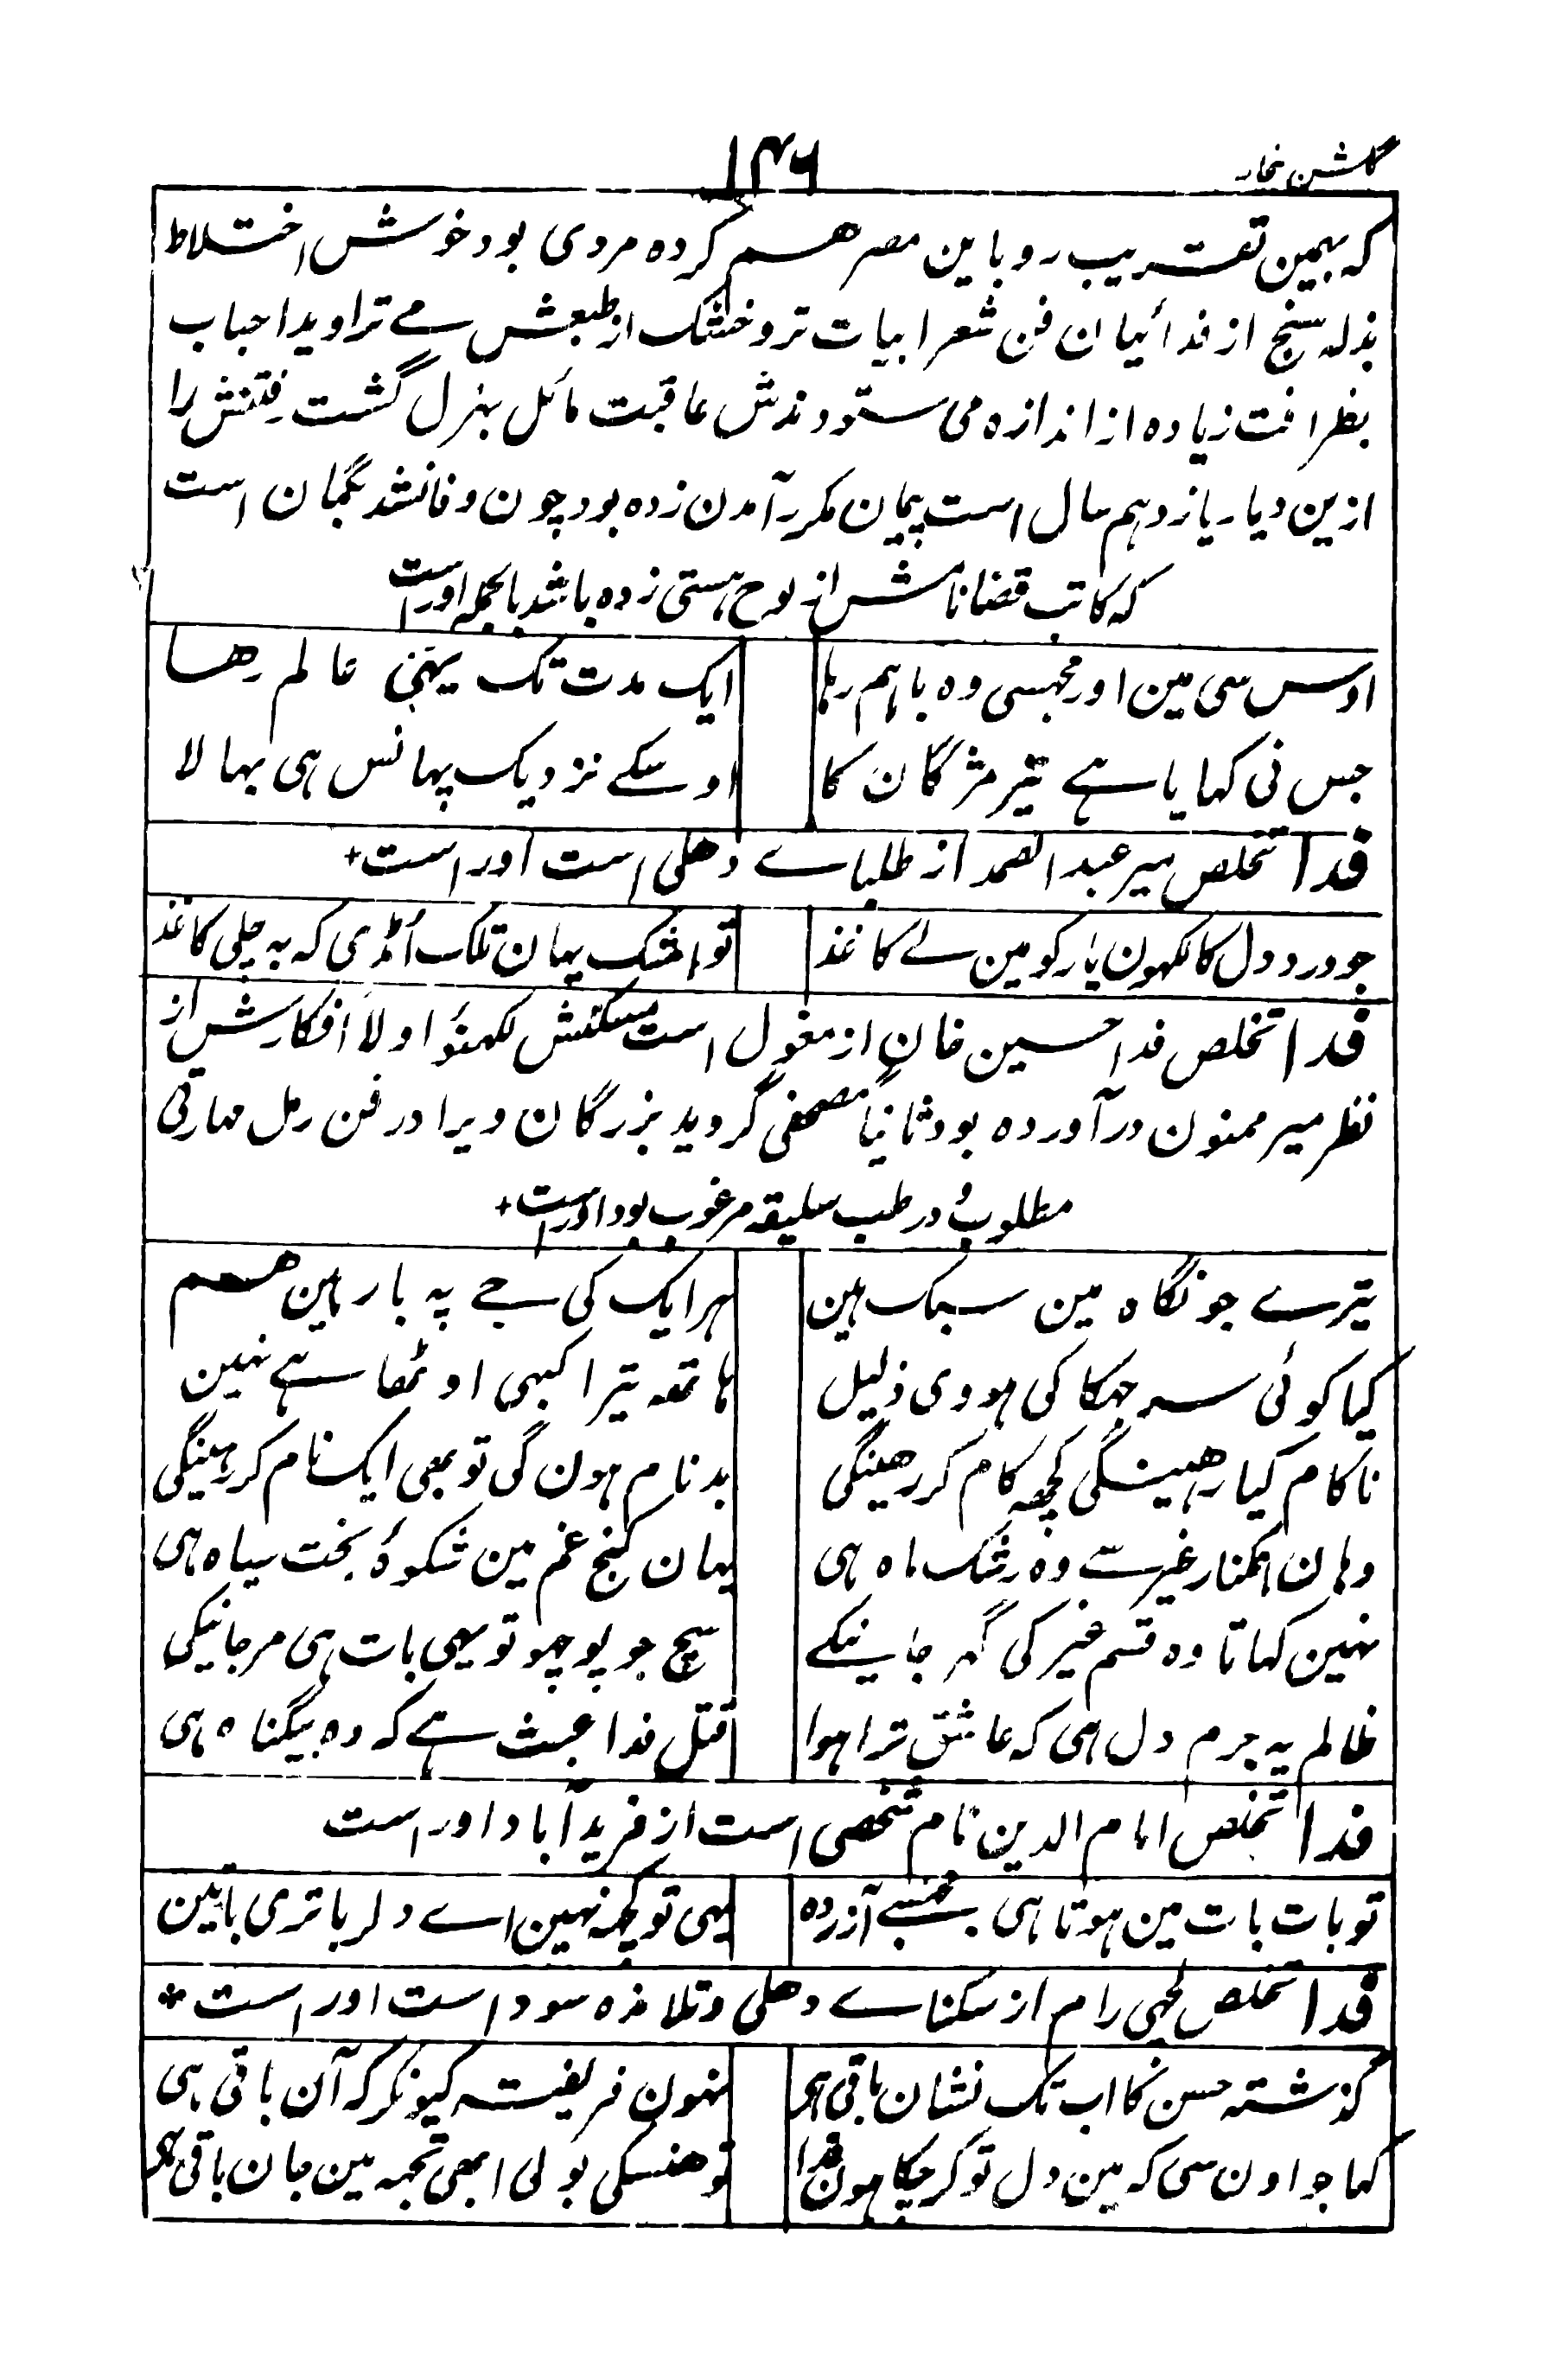 گلشن بیخار
۱۴۶
که بهمین تقریب رو باین مصر هم کرده مردی بود خوش اختلاط
بذله سنج از فدائیان فن شعر ابیات تر و خشک از طبعش می تراوید احباب
بظرافت زیاده از اندازه می ستودندش عاقبت مائل بهزل گشت رفتنش را
ازین دیار یازدهم سال است پیمان مکرر آمدن زده بود چون وفا نشد بگمان است
که کاتب قضا نامش از لوح هستی زده باشد بالجمله اوراست
اوس سی مین اور مجهسی وه باهم رہا	ایک مدت تک یہی عالم رها
جس نی کہایا ہے تیر مژگان کا	اوسکے نزدیک پہانس ہی بہالا
فدا تخلص میر عبد الصمد از طلباے دهلی است اوراست +
جو درد دل کا لکہون یار کو مین لے کاغذ	تو اشک یہان تلک اُمڈی کہ بہ چلی کاغذ
فدا تخلص فدا حسین خان از مغول است مسکنش لکہنؤ اولاً افکارش از
نظر میر ممنون درآورده بود ثانیاً مصحفی گروید بزرگان ویرا در فن رمل مہارتی
مطلوب و در طب سلیقه مرغوب بود اوراست +
تیرے جو نگاه مین سبک ہین	ہر ایک کی جے پہ بار ہین هم
کیا کوئی سر جہکا کی ہووی ذلیل	ہاتھ تیرا کبہی اوٹھا ہے نہین
ناکام کیا رهینگی کچھ کام کر رهینگی	بدنام ہون گی تو بھی ایک نام کر رہینگی
وہان ہمکنار غیر سے وه رشک ماه ہی	یہان کنج غم مین شکوۂ بخت سیاه ہی
نہین کہاتا وه قسم غیر کی گہر جاینکے	سچ جو پوچہو تو یہی بات ہی مر جانیکی
ظالم یہ جرم دل ہی کہ عاشق ترا ہوا	قتل فدا عبث ہے کہ وه بیگناه ہی
فدا تخلص امام الدین نام شخصی است از فریدآباد اوراست
تو بات بات مین ہوتا ہی مجھسے آزرده	یہی تو کچھ نہین اے دلربا تری باتین
فدا تخلص لچهی رام از سکناے دهلی و تلامذه سودا است اوراست *
گذشتہ حسن کا اب تک نشان باقی ہی	نہون فریفتہ کیونکر کہ آن باقی ہی
کہا جو اون سی کہ مین دل تو کر چکا ہون فدا	تو هنسکی بولی ابھی تجہ مین جان باقی ہی